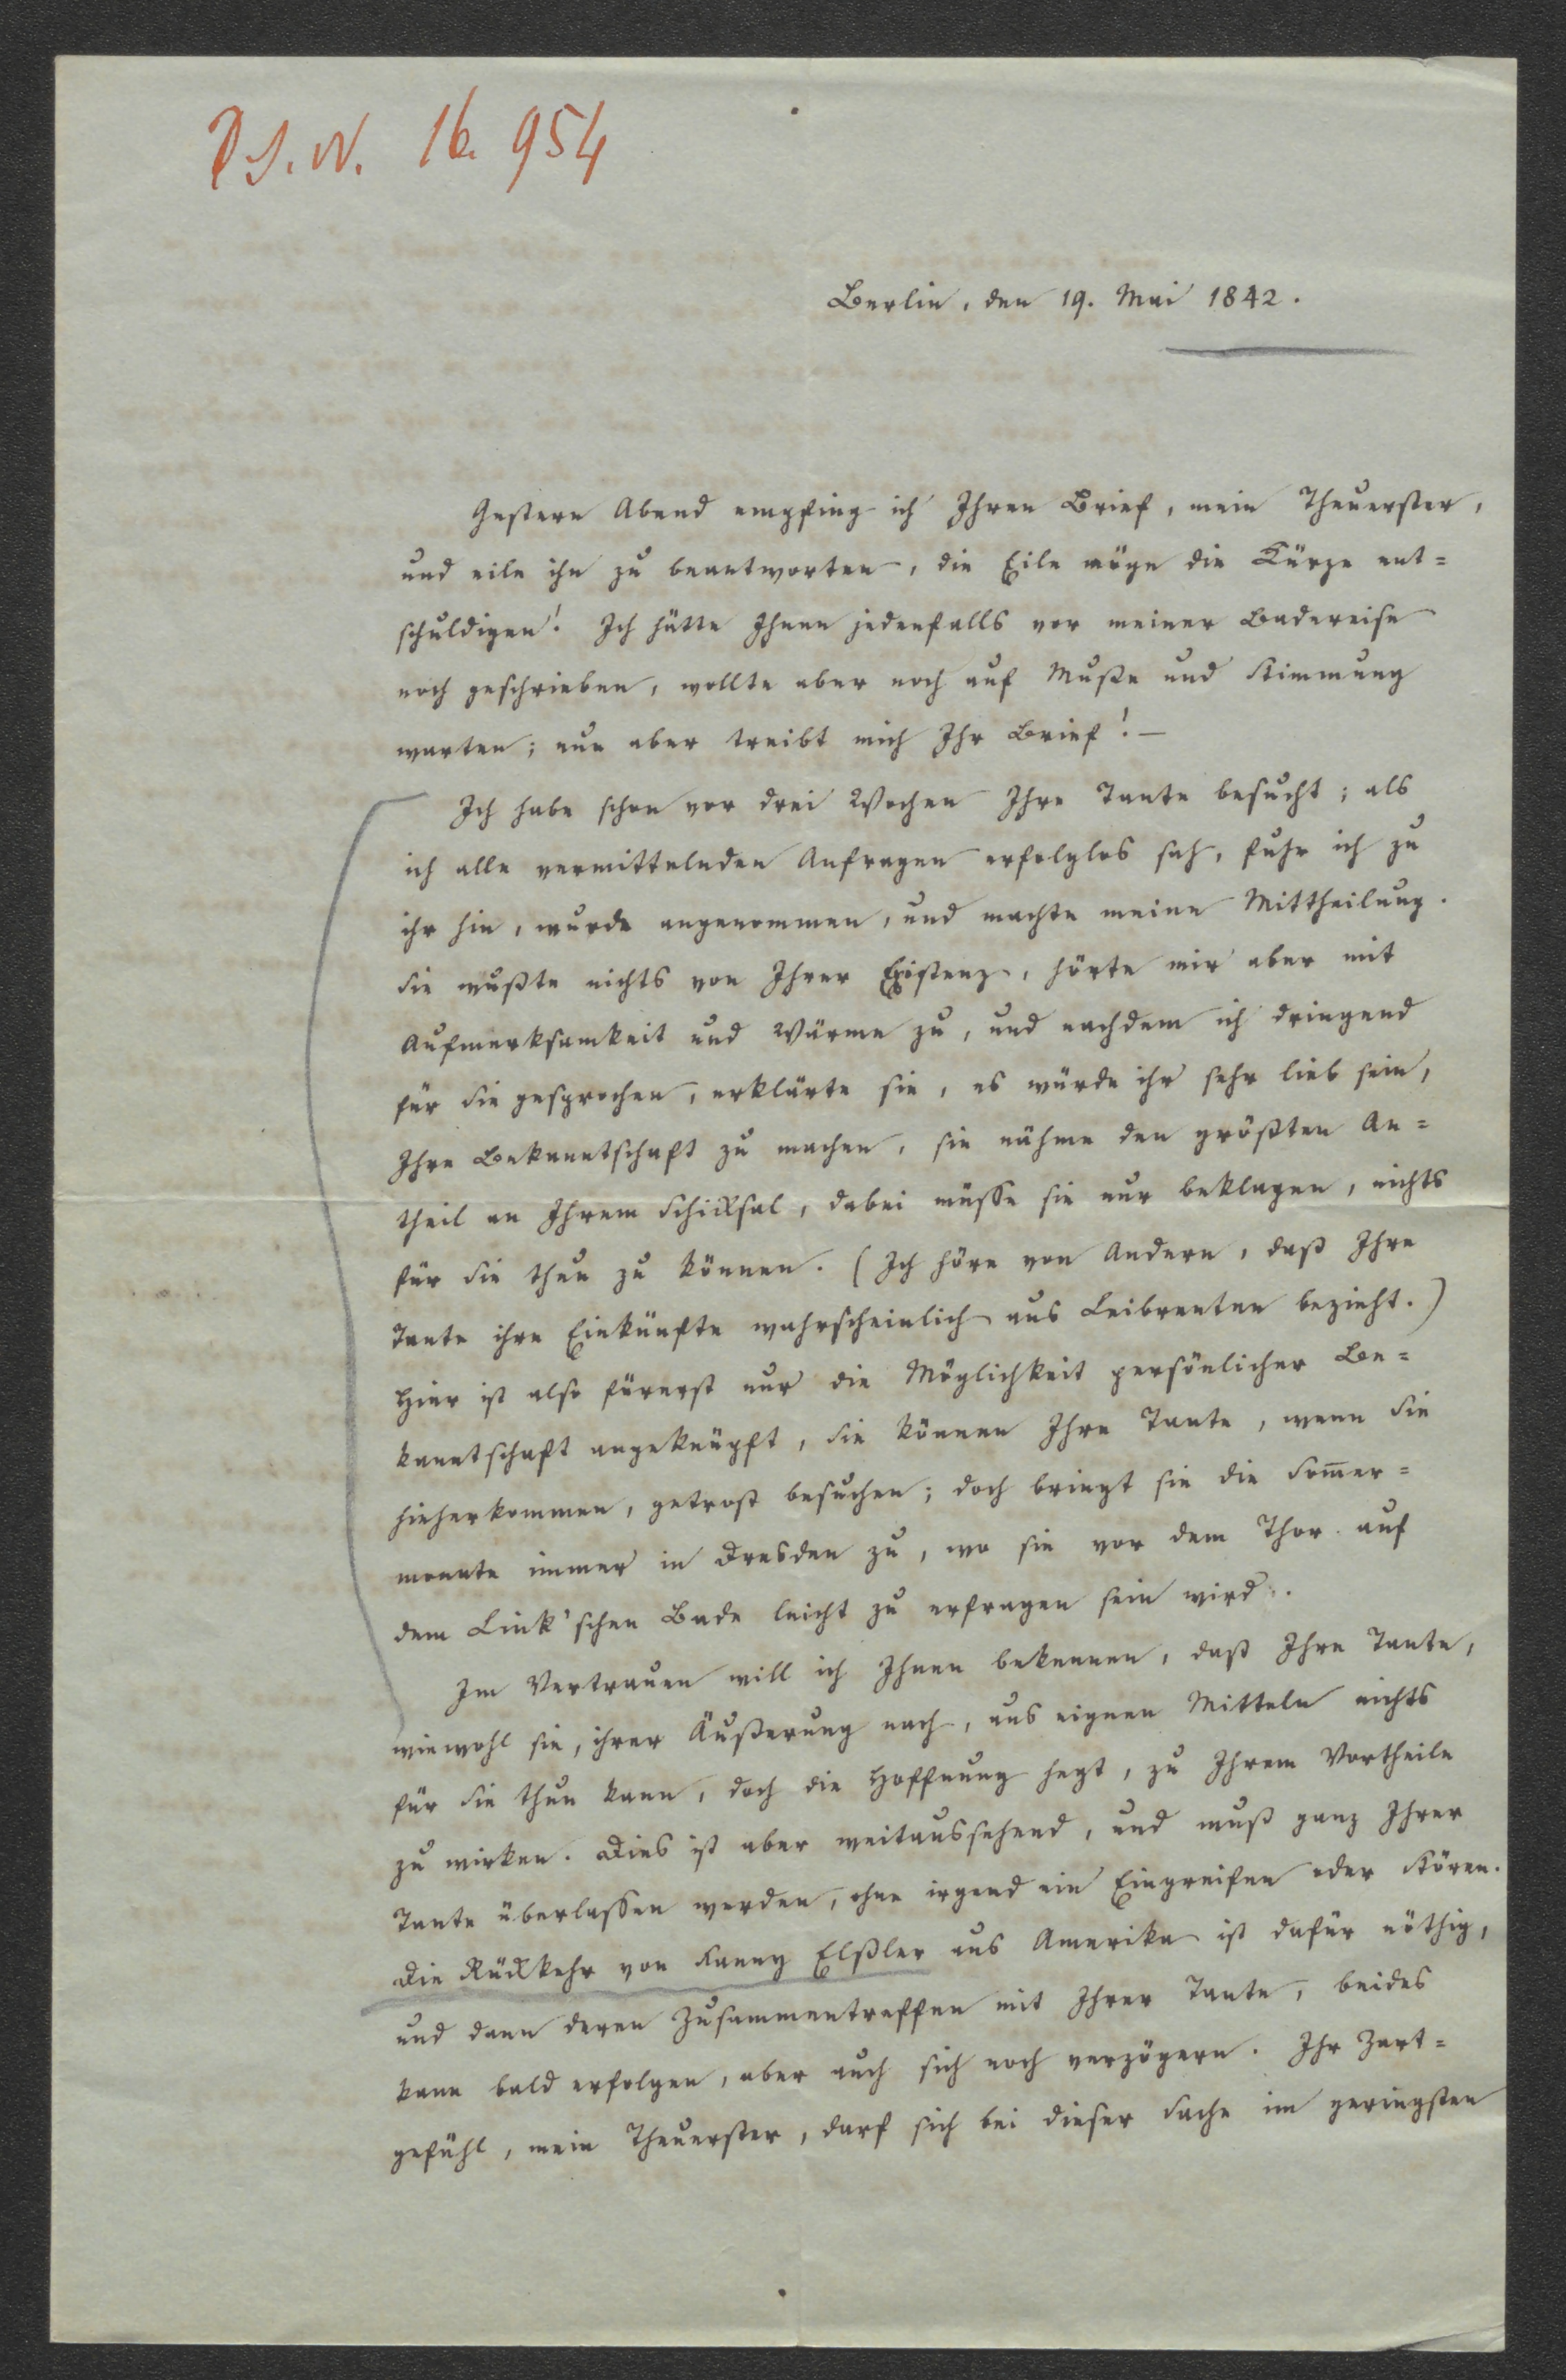 I. N. 16. 954
Berlin, den 19. Mai 1842.
Gestern Abend empfing ich Ihren Brief, mein Theuerster,
und eile ihn zu beantworten, die Eile möge die Kürze ent=
schuldigen! Ich hätte Ihnen jedenfalls vor meiner Badereise
noch geschrieben, wollte aber noch auf Muße und Stimmung
warten; nun aber treibt mich Ihr Brief! –
Ich habe schon vor drei Wochen Ihre Tante besucht; als
ich alle vermittelnden Anfragen erfolglos sah, fuhr ich zu
ihr hin, wurde angenommen, und machte meine Mittheilung.
Sie wußte nichts von Ihrer Existenz, hörte mir aber mit
Aufmerksamkeit und Wärme zu, und nachdem ich dringend
für Sie gesprochen, erklärte sie, es würde ihr sehr lieb sein,
Ihre Bekanntschaft zu machen, sie nähme den größten An=
theil an Ihrem Schicksal, dabei müsse sie nur beklagen, nichts
für Sie thun zu können. (Ich höre von Andern, daß Ihre
Tante ihre Einkünfte wahrscheinlich aus Leibrenten bezieht.)
Hier ist also fürerst nur die Möglichkeit persönlicher Be=
kanntschaft angeknüpft, Sie können Ihre Tante, wenn Sie
hieherkommen, getrost besuchen; doch bringt sie die Som̄er=
monate immer in Dresden zu, wo sie vor dem Thor auf
dem Link'schen Bade leicht zu erfragen sein wird.
Im Vertrauen will ich Ihnen bekennen, daß Ihre Tante,
wiewohl sie, ihrer Äußerung nach, aus eignen Mitteln nichts
für Sie thun kann, doch die Hoffnung hegt, zu Ihrem Vortheile
zu wirken. Dies ist aber weitaussehend, und muß ganz Ihrer
Tante überlassen werden, ohne irgend ein Eingreifen oder Stören.
Die Rückkehr von Fanny Elßler aus Amerika ist dafür nöthig,
und dann deren Zusammentreffen mit Ihrer Tante, beides
kann bald erfolgen, aber auch sich noch verzögern. Ihr Zart=
gefühl, mein Theuerster, darf sich bei dieser Sache im geringsten